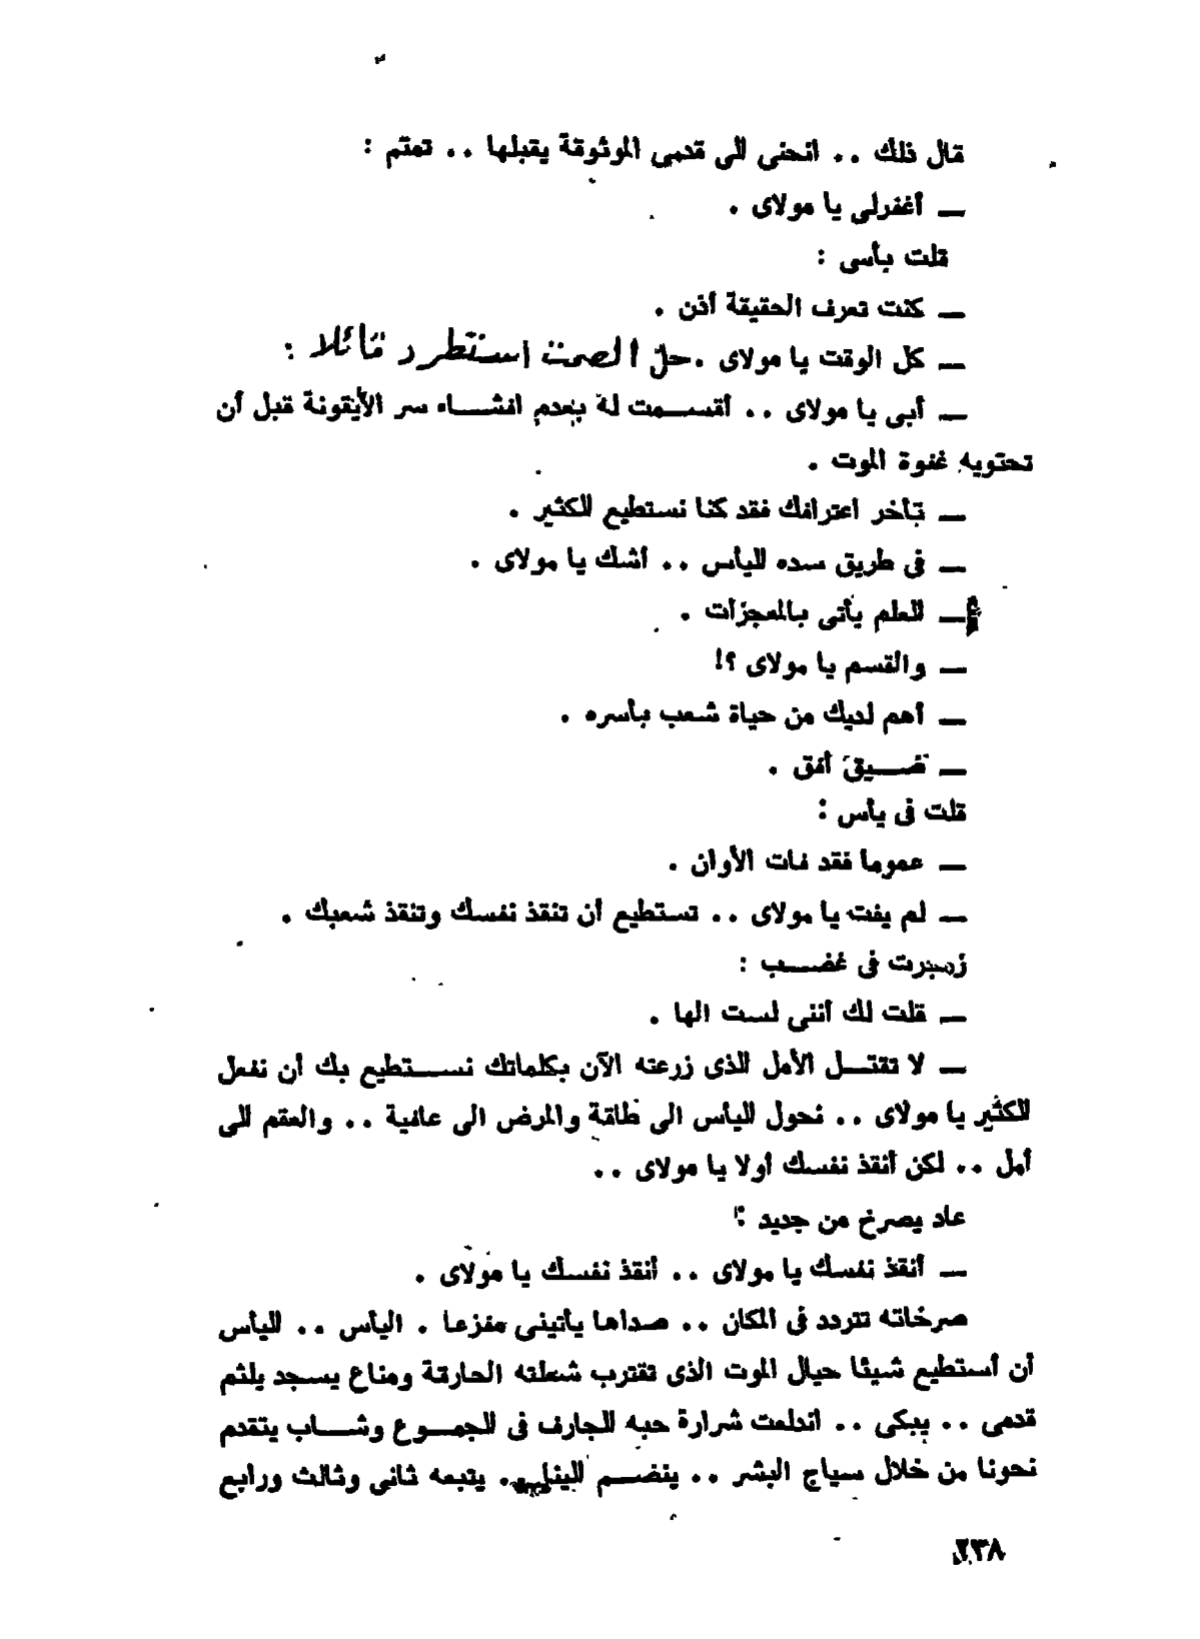 قال ذلك .. انحنى الى قدمى الموثوقة يقبلها .. تمتم :
— أغفرلى يا مولاى .
قلت بأسى :
— كنت تعرف الحقيقة أذن .
— كل الوقت يا مولاى . حلّ الصمت استطرد قائلا :
— أبى يا مولاى .. أقسمت له بعدم افشاء سر الأيقونة قبل أن
تحتويه غفوة الموت .
— تأخر اعترافك فقد كنا نستطيع الكثير .
— فى طريق سده اليأس .. أشك يا مولاى .
— العلم يأتى بالمعجزات .
— والقسم يا مولاى ؟!
— أهم لديك من حياة شعب بأسره .
— ضيق أفق .
قلت فى يأس :
— عموما فقد فات الأوان .
— لم يفت يا مولاى .. تستطيع أن تنقذ نفسك وتنقذ شعبك .
زمجرت فى غضب :
— قلت لك أننى لست الها .
— لا تقتل الأمل الذى زرعته الآن بكلماتك نستطيع بك أن نفعل
الكثير يا مولاى .. نحول اليأس الى طاقة والمرض الى عافية .. والعقم الى
أمل .. لكن أنقذ نفسك أولا يا مولاى ..
عاد يصرخ من جديد :
— أنقذ نفسك يا مولاى .. أنقذ نفسك يا مولاى .
صرخاته تتردد فى المكان .. صداها يأتينى مفزعا . اليأس .. اليأس
أن أستطيع شيئا حيال الموت الذى تقترب شعلته الحارقة ومناع يسجد يلثم
قدمى .. يبكى .. اندلعت شرارة حبه الجارف فى الجموع وشاب يتقدم
نحونا من خلال سياج البشر .. ينضم الينا . يتبعه ثانى وثالث ورابع
٢٣٨